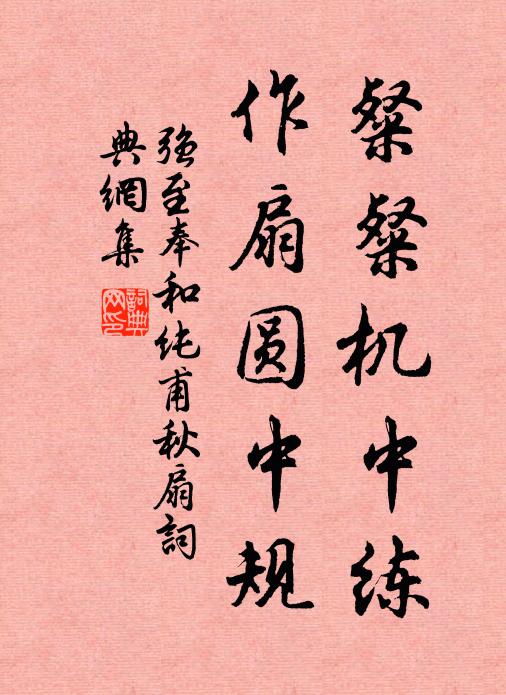 粲粲机中练
作扇圆中规
强至奉和纯甫秋扇词
典網集
詞典網印